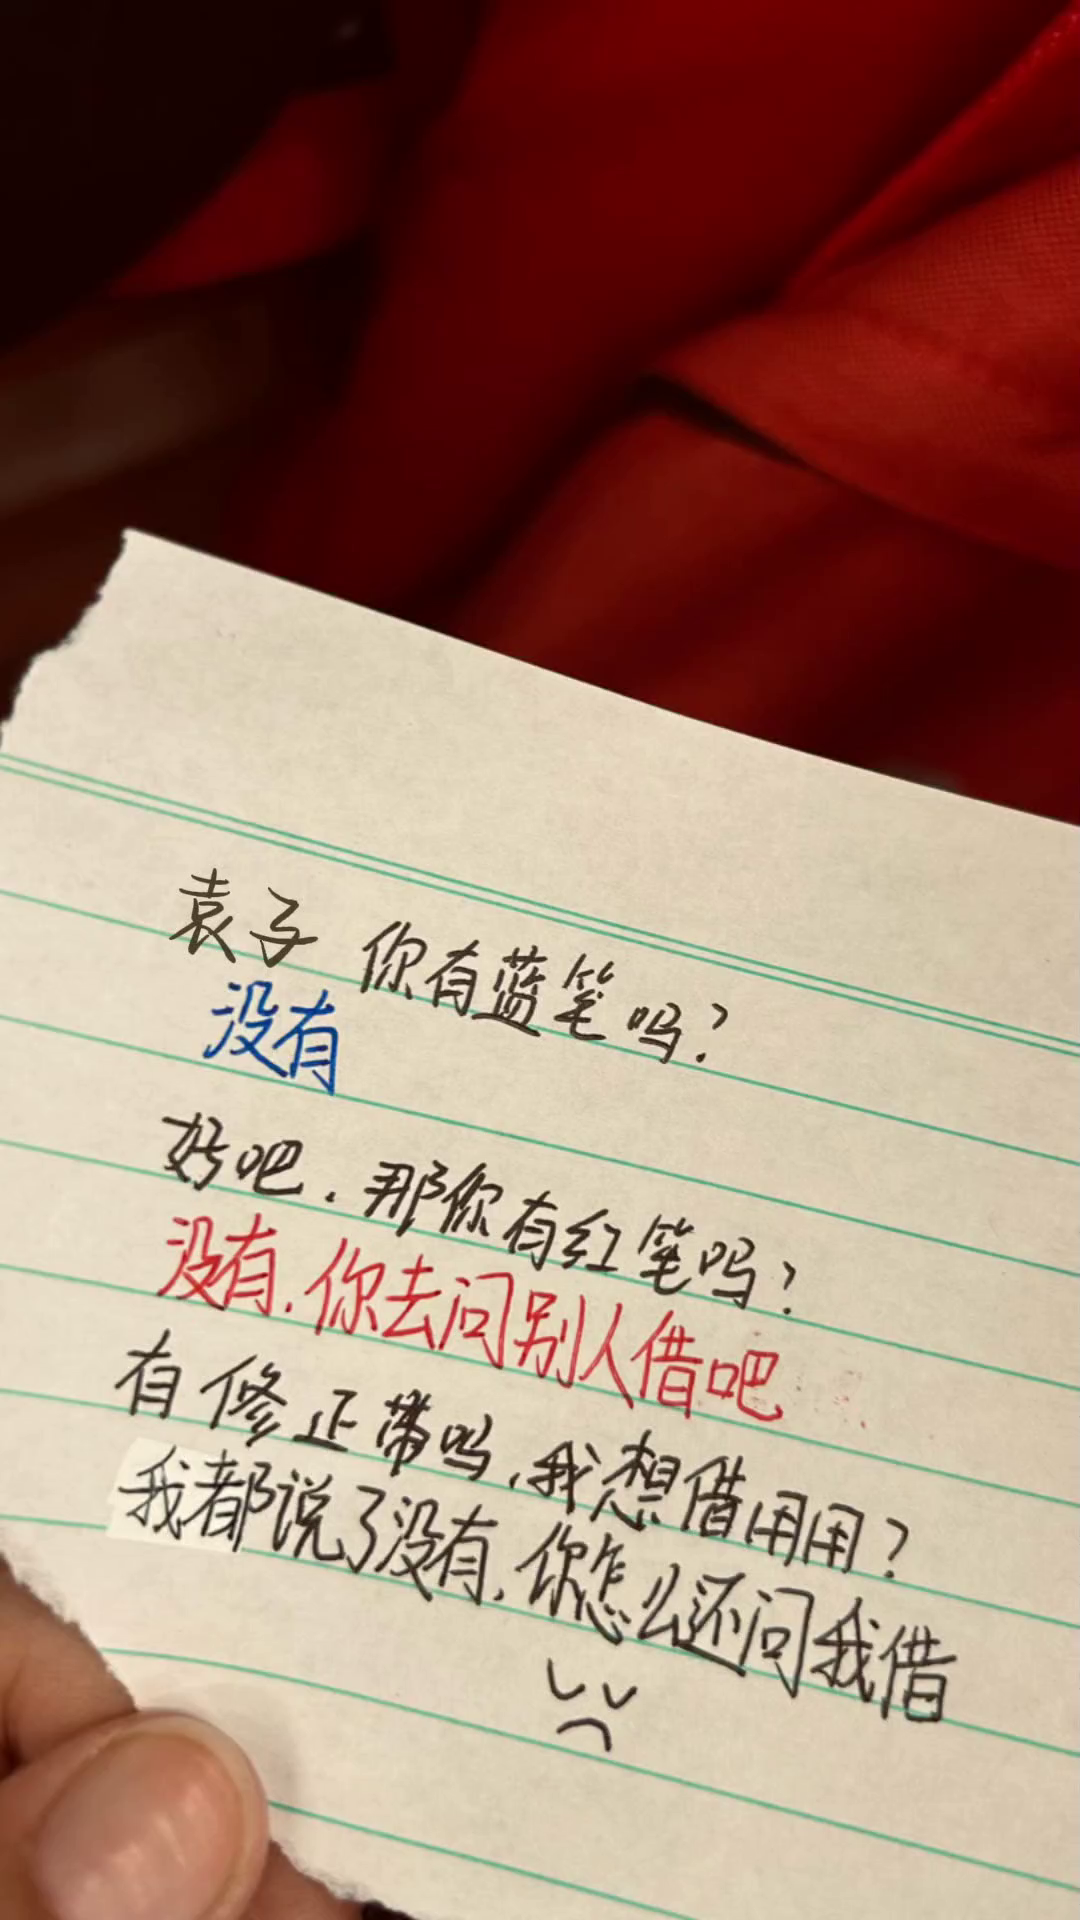 袁子 你有蓝笔吗?
没有
好吧.那你有红笔吗?
没有,你去问别人借吧
有修正带吗,我想借用用?
我都说了没有,你怎么还问我借